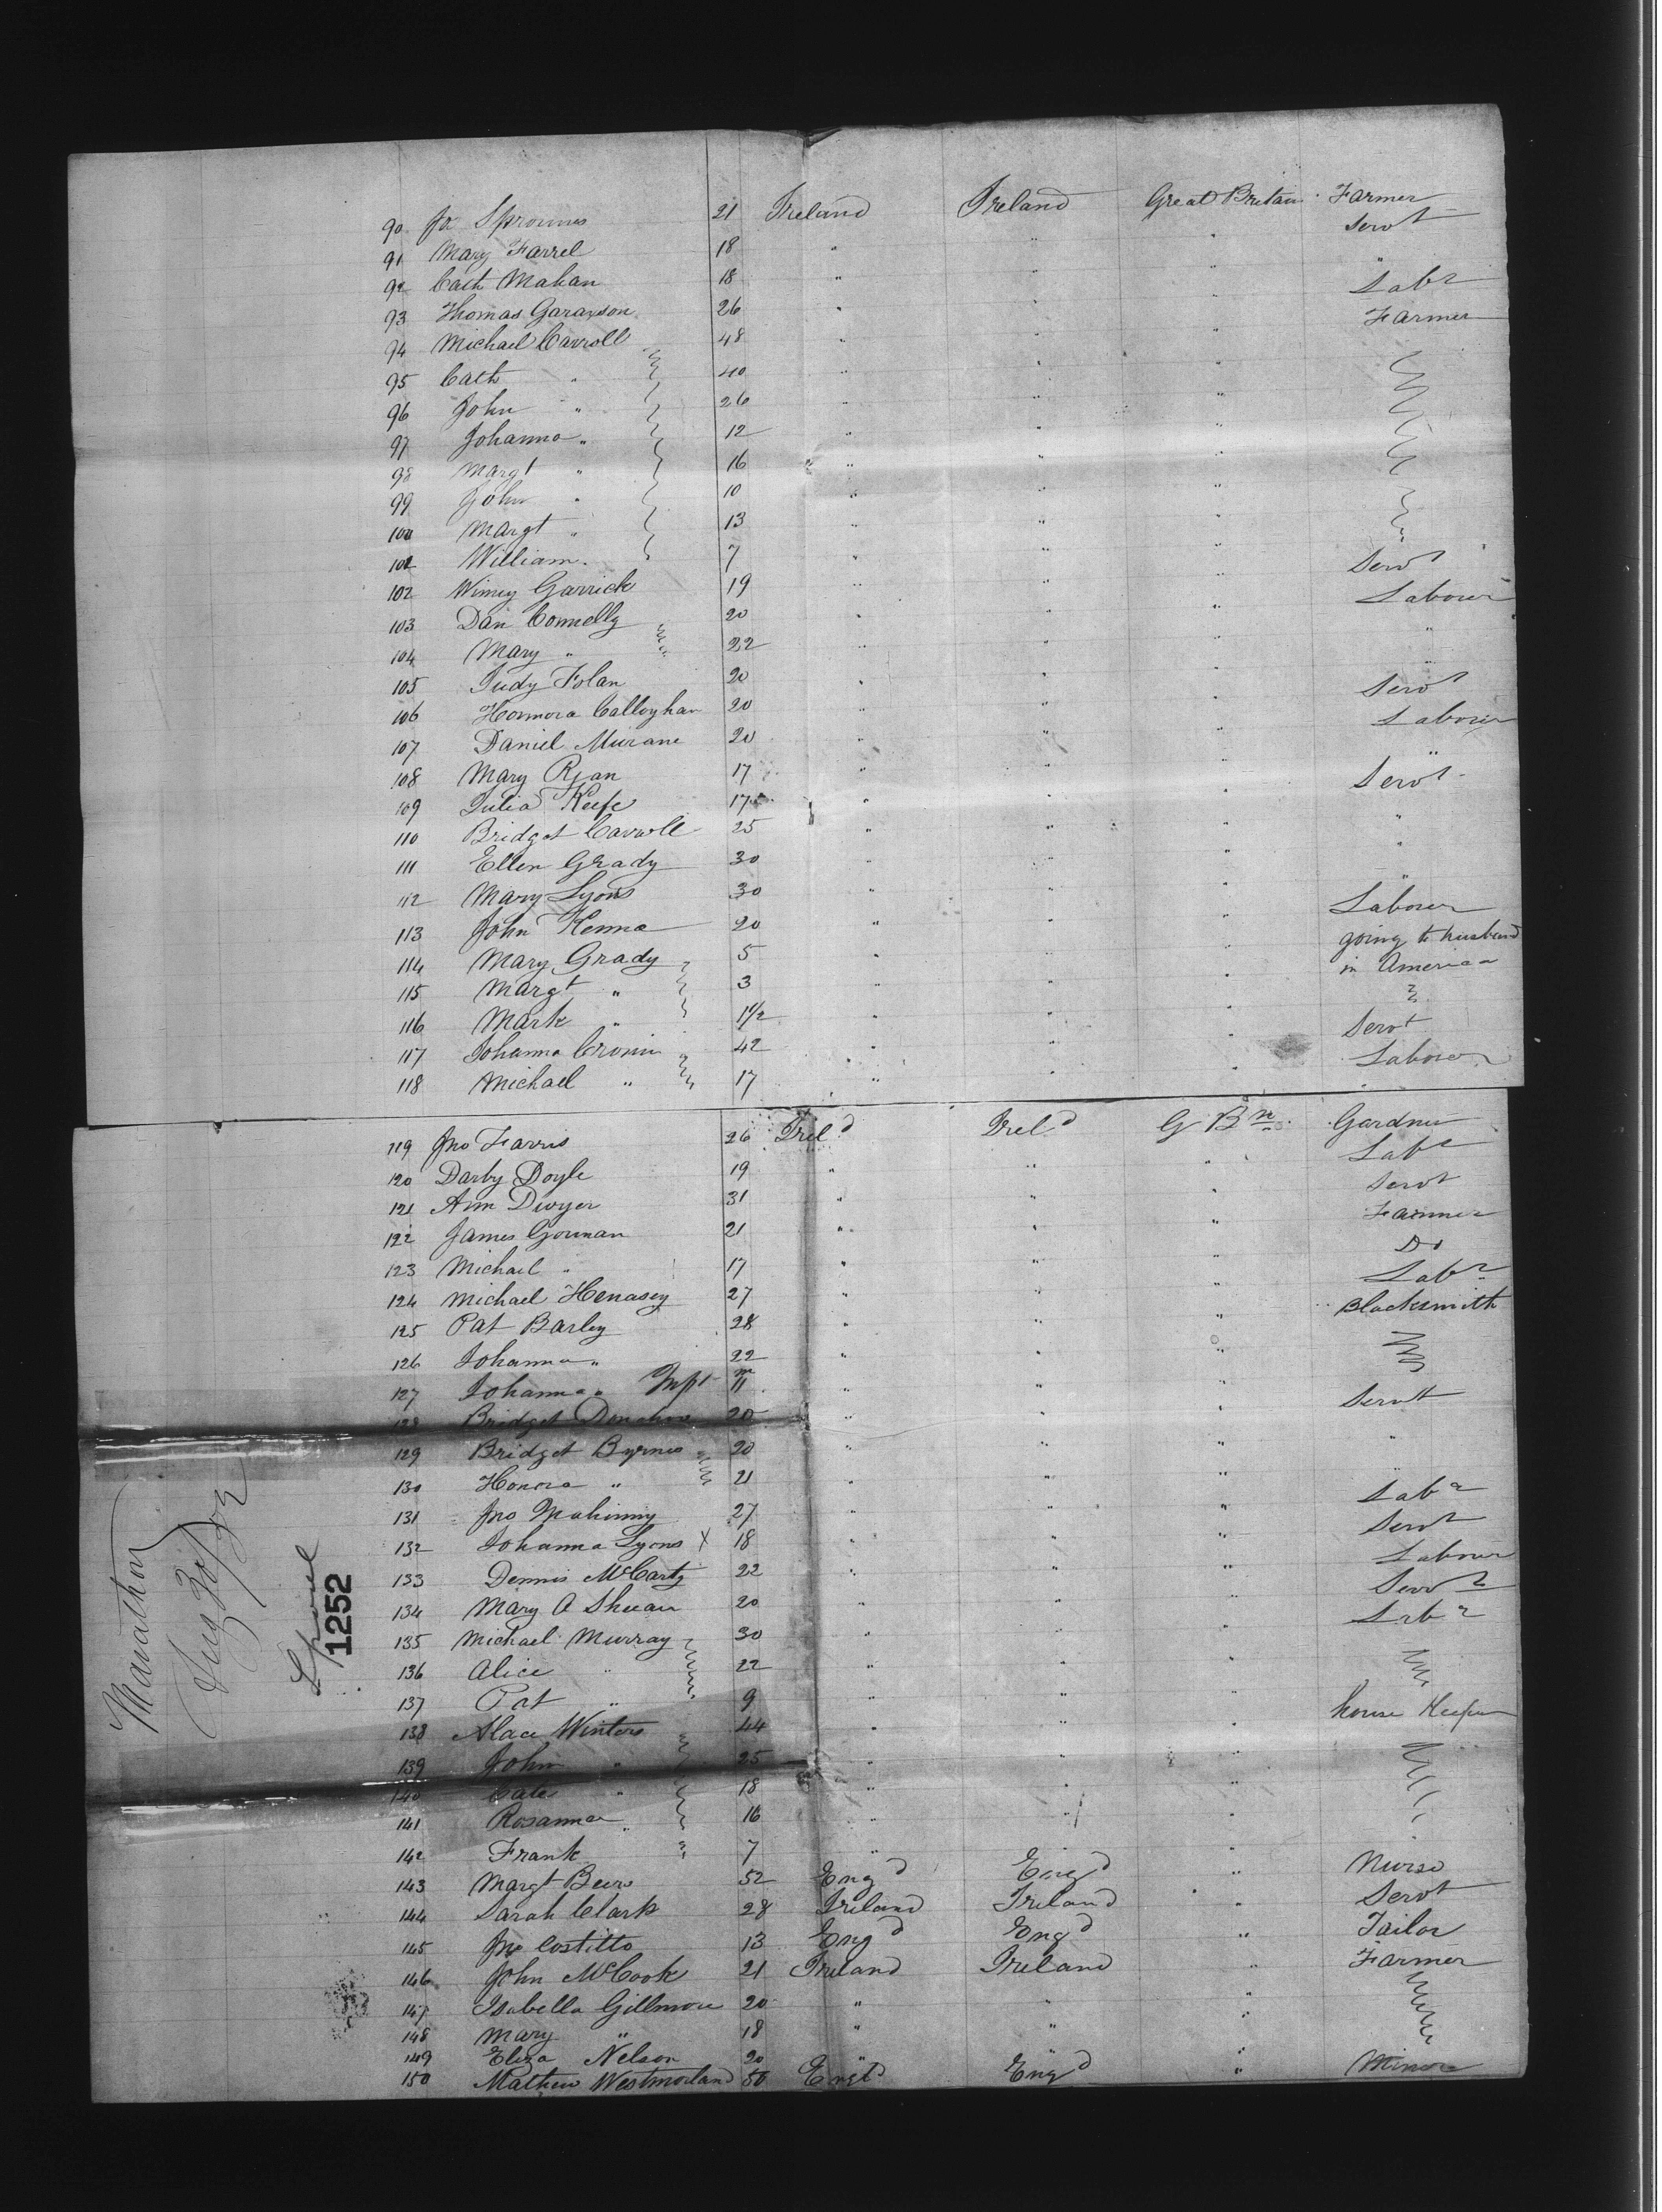 90 Js 21 Ireland Ireland Great Britain Farmer
91 Mary Farrel 18 " " " Servt
92 Cath Mahan 18 " " " "
93 Thomas Garayson 26 " " " Labr
94 Michael Carroll 48 " " " Farmer
95 Cath " 40 " " "
96 John " 26 " " "
97 Johanna " 12 " " "
98 Margt " 16 " " "
99 John " 10 " " "
100 Margt " 13 " " "
101 William " 7 " " "
102 Winny Garrick 19 " " " Servt
103 Dan Connelly 20 " " " Labourer
104 Mary " 22 " " " "
105 Judy Folan 20 " " " "
106 Honnora Calloghan 20 " " " Servt
107 Daniel Murane 20 " " " Labourer
108 Mary Ryan 17 " " " "
109 Julia Keefe 17 " " " Servt
110 Bridget Carroll 25 " " " "
111 Ellen Grady 30 " " " "
112 Mary Lyons 30 " " " "
113 John Kenna 20 " " " Labourer
114 Mary Grady 5 " " " going to husband
115 Margt " 3 " " " in America
116 Mark " 1 1/2 " " "
117 Johanna Cronin 42 " " " Servt
118 Michael " 17 " " " Labourer
119 Jno Farris 26 Ireld Ireld G Bn Gardner
120 Darby Doyle 19 " " " Labr
121 Ann Dwyer 31 " " " Servt
122 James Gorman 21 " " " Farmer
123 Michael " 17 " " " Do
124 Michael Henasey 27 " " " Labr
125 Pat Barley 28 " " " Blacksmith
126 Johanna " 22 " " "
127 Johanna " Inft 11 m " " "
128 Bridget Donahoe 20 " " " Servt
129 Bridget Byrnes 20 " " " "
130 Honora " 21 " " " "
131 Jno Mahinny 27 " " " Labr
132 Johanna Lyons X 18 " " " Servt
133 Dennis McCarty 22 " " " Labourer
134 Mary A Sheean 20 " " " Servt
135 Michael Murray 30 " " " Labr
136 Alice " 22 " " "
137 Pat " 9 " " "
138 Alace Winters 44 " " " house Keeper
139 John " 25 " " "
140 Cate " 18 " " "
141 Rosanna " 16 " " "
142 Frank " 7 " " "
143 Margt Beers 52 Engd Engd " Nurse
144 Sarah Clark 28 Ireland Ireland " Servt
145 Jno Costitto 13 Engd Engd " Tailor
146 John McCook 21 Ireland Ireland " Farmer
147 Isabella Gillmore 20 " " "
148 Mary " 18 " " "
149 Eliza Nelson 20 " " "
150 Mathew Westmorland 50 Engld Engd " Minor
Marathon
Aug 30/52
Lpool
1252